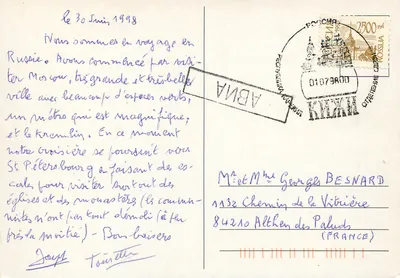 le 30 Juin 1998
Nous sommes en voyage en
Russie. Avons commencé par visi-
ter Moscou, très grande et très belle
ville avec beaucoup d'espaces verts,
un métro qui est magnifique,
et le Kremlin. En ce moment
notre croisière se poursuit vers
St Pétersbourg en faisant des es-
cales pour visiter surtout des
églises et des monastères (les commu-
nistes n'ont pas tout démoli (à peu
près la moitié) - Bons baisers
Joseph
АВИА
РОССИЯ
010798
КИЖИ
2500
ROSSIJA
Mr et Mme Georges BESNARD
1132 Chemin de la Vitrière
84210 Althen des Paluds
(FRANCE)